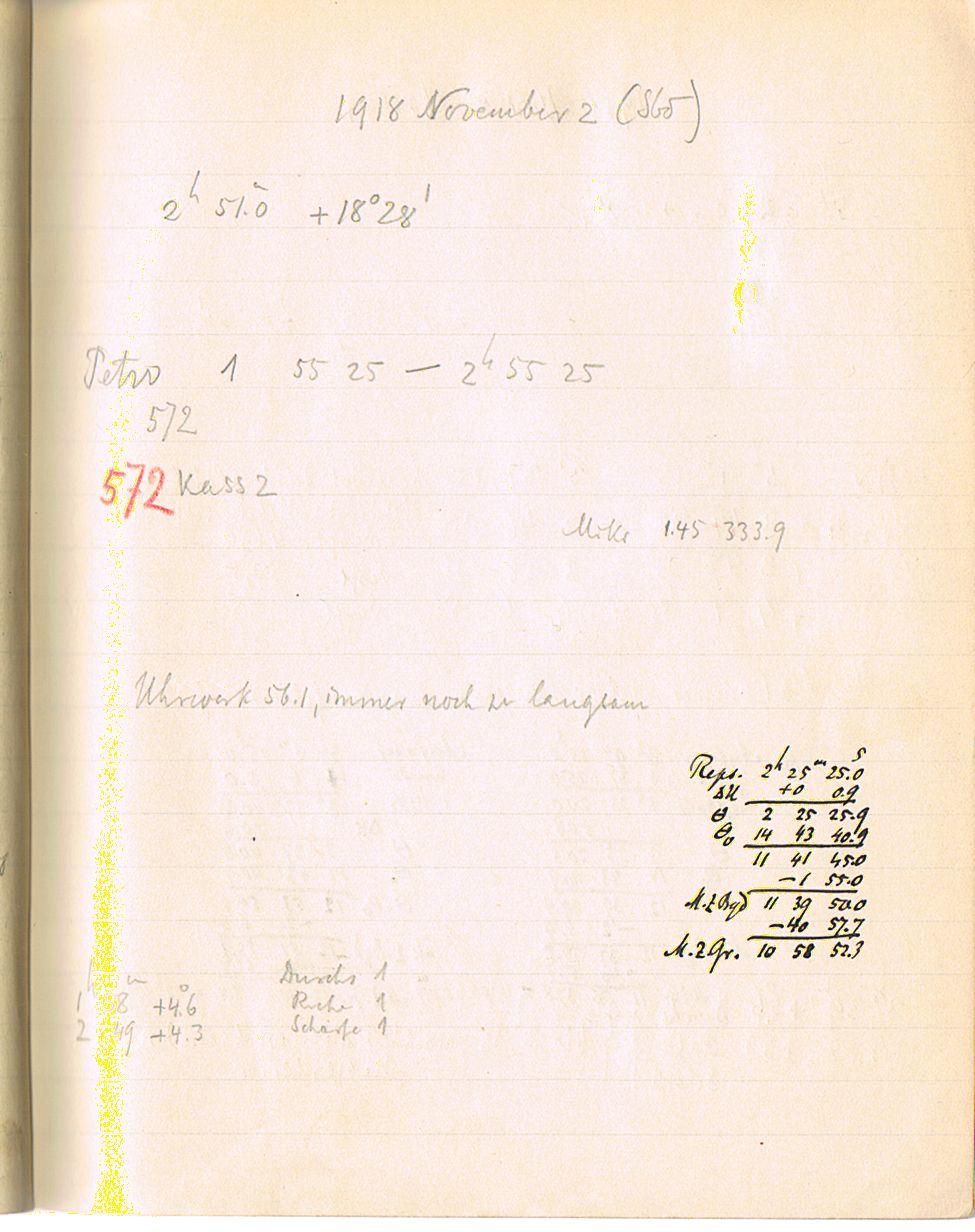 1918 November 2 (Sbd)
2ʰ 51.ᵐ0 +18°28'
Petro 1 55 25 — 2ʰ 55 25
572
572 Kass 2
Mikr 1.45 333.9
Uhrwerk 56.1, immer noch zu langsam
Reps. 2ʰ 25ᵐ 25.0ˢ
ΔU +0 0.9
θ 2 25 25.9
θ₀ 14 43 40.9
11 41 45.0
−1 55.0
M.Z. Bgd 11 39 50.0
−40 57.7
M.Z. Gr. 10 58 52.3
h m Durchs 1
1 8 +4.°6 Ruhe 1
2 49 +4.3 Schärfe 1